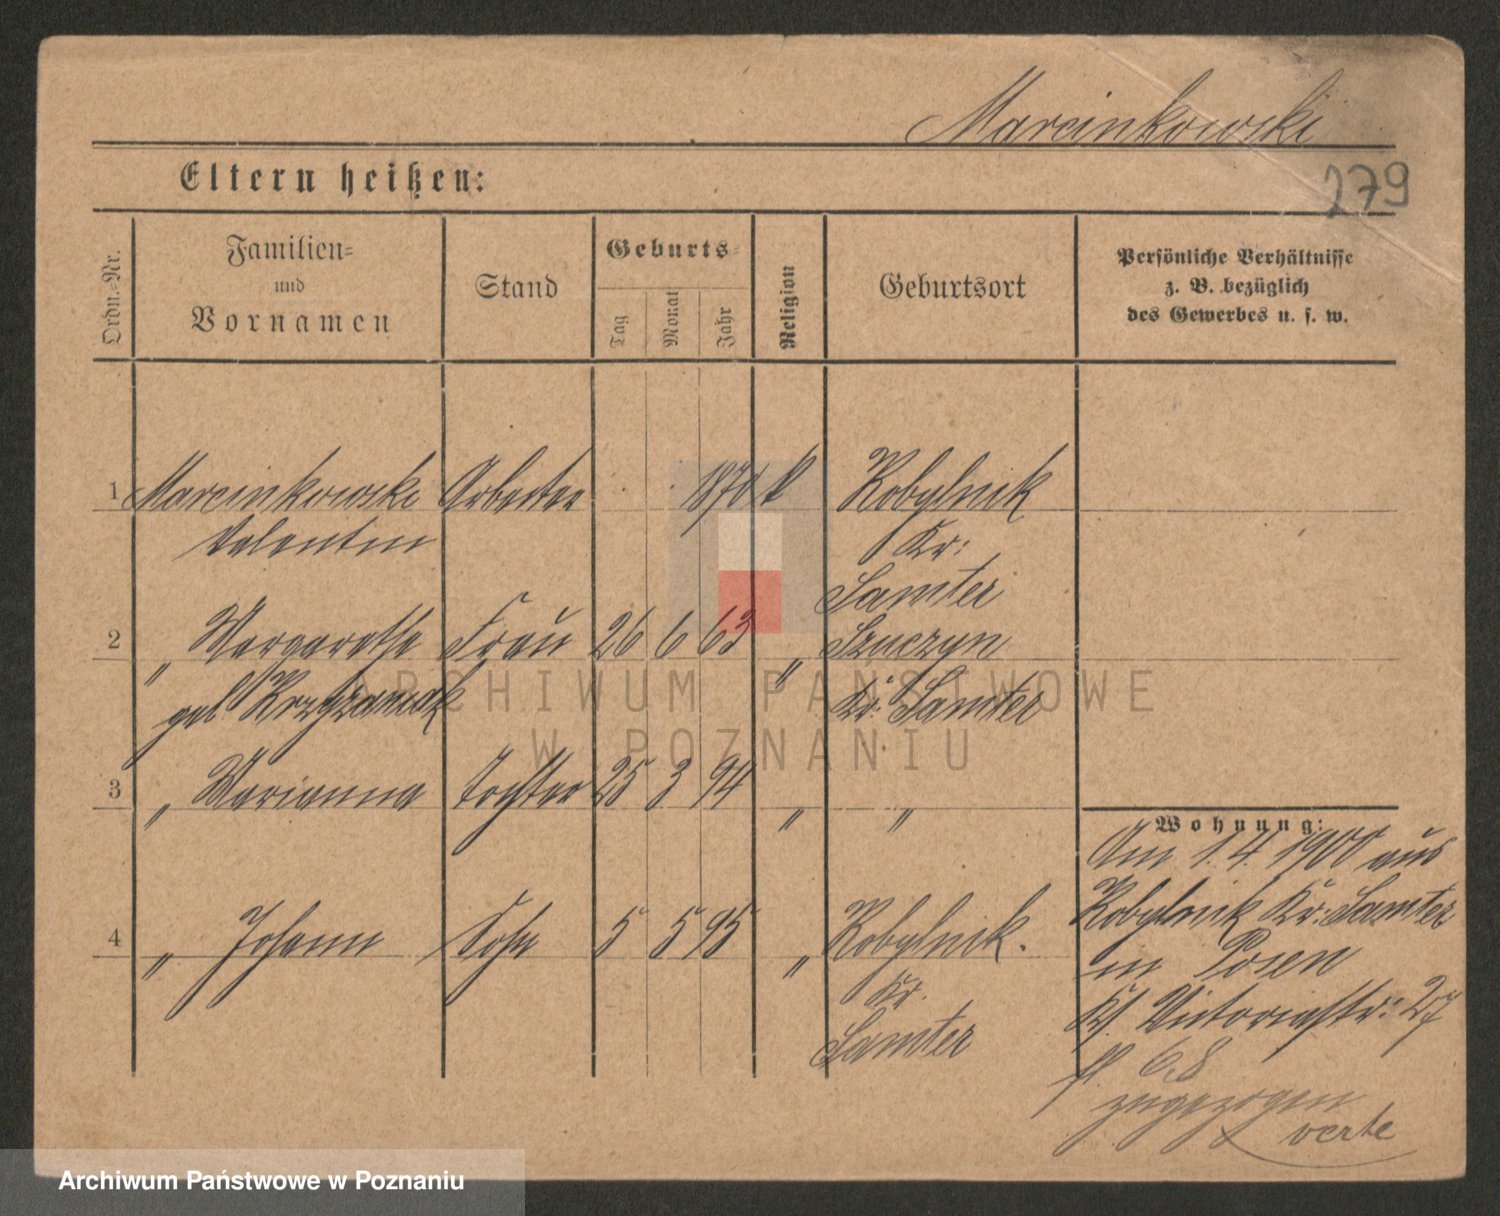 Marcinkowski
Eltern heißen:
279
Ordn.-Nr.
Familien-
und
Vornamen
Stand
Geburts-
Tag
Monat
Jahr
Religion
Geburtsort
Persönliche Verhältnisse
z. B. bezüglich
des Gewerbes u. s. w.
1 Marcinkowski Arbeiter 1870 k Kobylnik
Valentin Kr:
Samter
2 " Margarethe Frau 26 6 63 " Szuczyn
geb Krzyżaniak Kr: Samter
3 " Marianna Tochter 25 3 94 " "
4 " Johann Sohn 5 5 95 " Kobylnik.
Kr.
Samter
Wohnung:
Am 1. 4. 1900 aus
Kobylnik Kr: Samter
in Posen
Victoriastr: 27
6.8
zugezogen
verte
ARCHIWUM PAŃSTWOWE
W POZNANIU
Archiwum Państwowe w Poznaniu